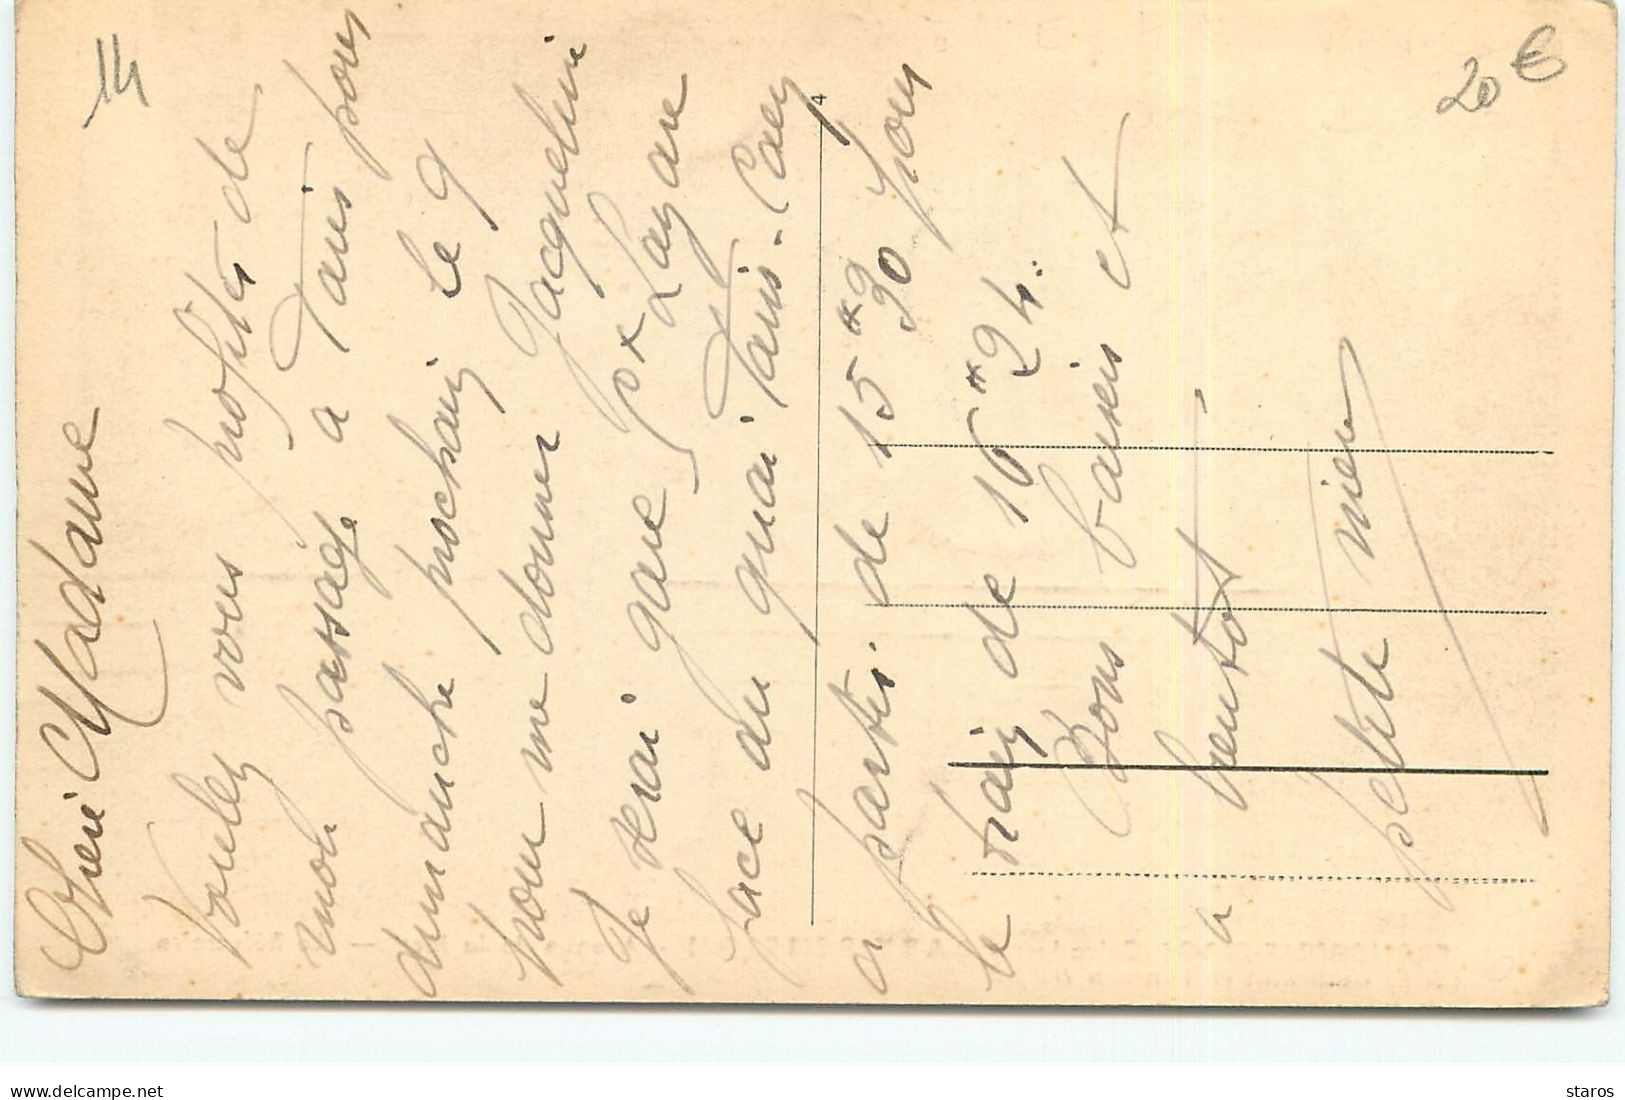 Chère Madame
Voulez vous profiter de
mon passage a Paris pour
dimanche prochain le 9
pour me donner Jacqueline
Je serai gare St Lazare
face au quai Paris-Caen
a partir de 15 H 30 pour
le train de 16 H 24.
Bons baisers et
a bientot
petite
14
20 €
4
delcampe.net
staros